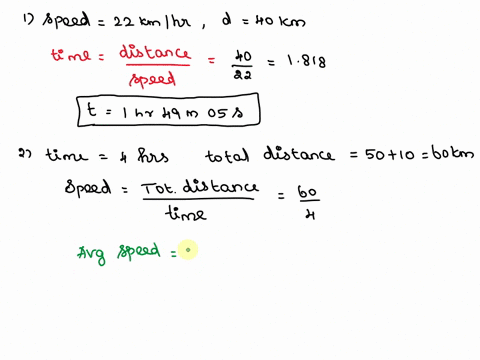 1) Speed = 22 km/hr, d = 40 km
time = distance/speed = 40/22 = 1.818
t = 1 hr 49 m 05 s
2) time = 4 hrs total distance = 50 + 10 = 60 km
Speed = Tot. distance/time = 60/4
Avg speed =